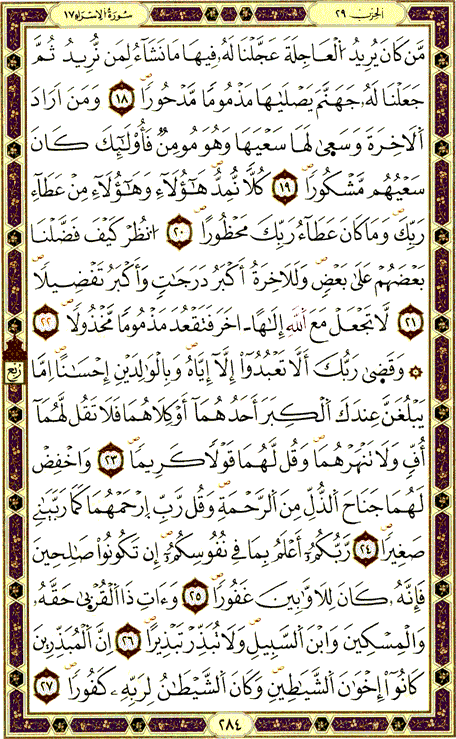 الحزب ٢٩
سورة الإسراء ١٧
مَّن كَانَ يُرِيدُ الْعَاجِلَةَ عَجَّلْنَا لَهُ فِيهَا مَا نَشَاءُ لِمَن نُّرِيدُ ثُمَّ
جَعَلْنَا لَهُ جَهَنَّمَ يَصْلَىٰهَا مَذْمُومًا مَّدْحُورًا ١٨ وَمَنْ أَرَادَ
الْآخِرَةَ وَسَعَىٰ لَهَا سَعْيَهَا وَهُوَ مُؤْمِنٌ فَأُوْلَٰئِكَ كَانَ
سَعْيُهُم مَّشْكُورًا ١٩ كُلًّا نُّمِدُّ هَٰؤُلَاءِ وَهَٰؤُلَاءِ مِنْ عَطَاءِ
رَبِّكَ وَمَا كَانَ عَطَاءُ رَبِّكَ مَحْظُورًا ٢٠ انظُرْ كَيْفَ فَضَّلْنَا
بَعْضَهُمْ عَلَىٰ بَعْضٍ وَلَلْآخِرَةُ أَكْبَرُ دَرَجَاتٍ وَأَكْبَرُ تَفْضِيلًا
٢١ لَّا تَجْعَلْ مَعَ اللَّهِ إِلَٰهًا ـاخَرَ فَتَقْعُدَ مَذْمُومًا مَّخْذُولًا ٢٢
۞ وَقَضَىٰ رَبُّكَ أَلَّا تَعْبُدُوٓاْ إِلَّا إِيَّاهُ وَبِالْوَالِدَيْنِ إِحْسَٰنًا إِمَّا
يَبْلُغَنَّ عِندَكَ الْكِبَرَ أَحَدُهُمَا أَوْ كِلَاهُمَا فَلَا تَقُل لَّهُمَا
أُفٍّ وَلَا تَنْهَرْهُمَا وَقُل لَّهُمَا قَوْلًا كَرِيمًا ٢٣ وَاخْفِضْ
لَهُمَا جَنَاحَ الذُّلِّ مِنَ الرَّحْمَةِ وَقُل رَّبِّ ارْحَمْهُمَا كَمَا رَبَّيَٰنِي
صَغِيرًا ٢٤ رَّبُّكُمْ أَعْلَمُ بِمَا فِي نُفُوسِكُمْ إِن تَكُونُواْ صَٰلِحِينَ
فَإِنَّهُ كَانَ لِلْأَوَّابِينَ غَفُورًا ٢٥ وَءَاتِ ذَا الْقُرْبَىٰ حَقَّهُ
وَالْمِسْكِينَ وَابْنَ السَّبِيلِ وَلَا تُبَذِّرْ تَبْذِيرًا ٢٦ إِنَّ الْمُبَذِّرِينَ
كَانُوٓاْ إِخْوَٰنَ الشَّيَٰطِينِ وَكَانَ الشَّيْطَٰنُ لِرَبِّهِ كَفُورًا ٢٧
ربع
٢٨٤